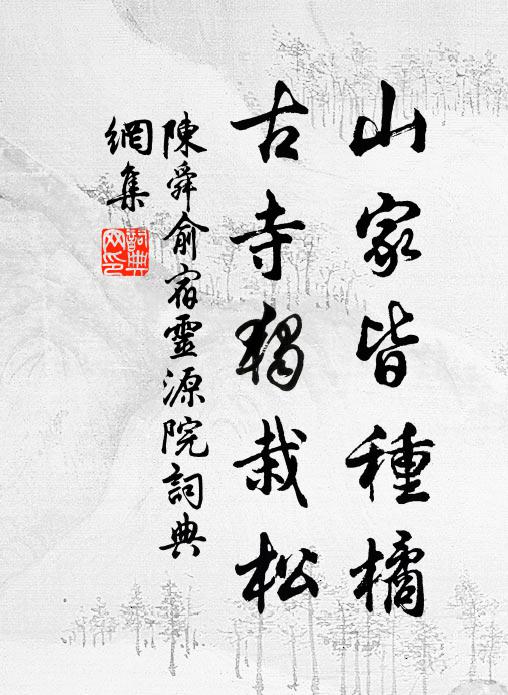 山家皆種橘
古寺獨栽松
陳舜俞宿靈源院詞典
網集
詞典
网印